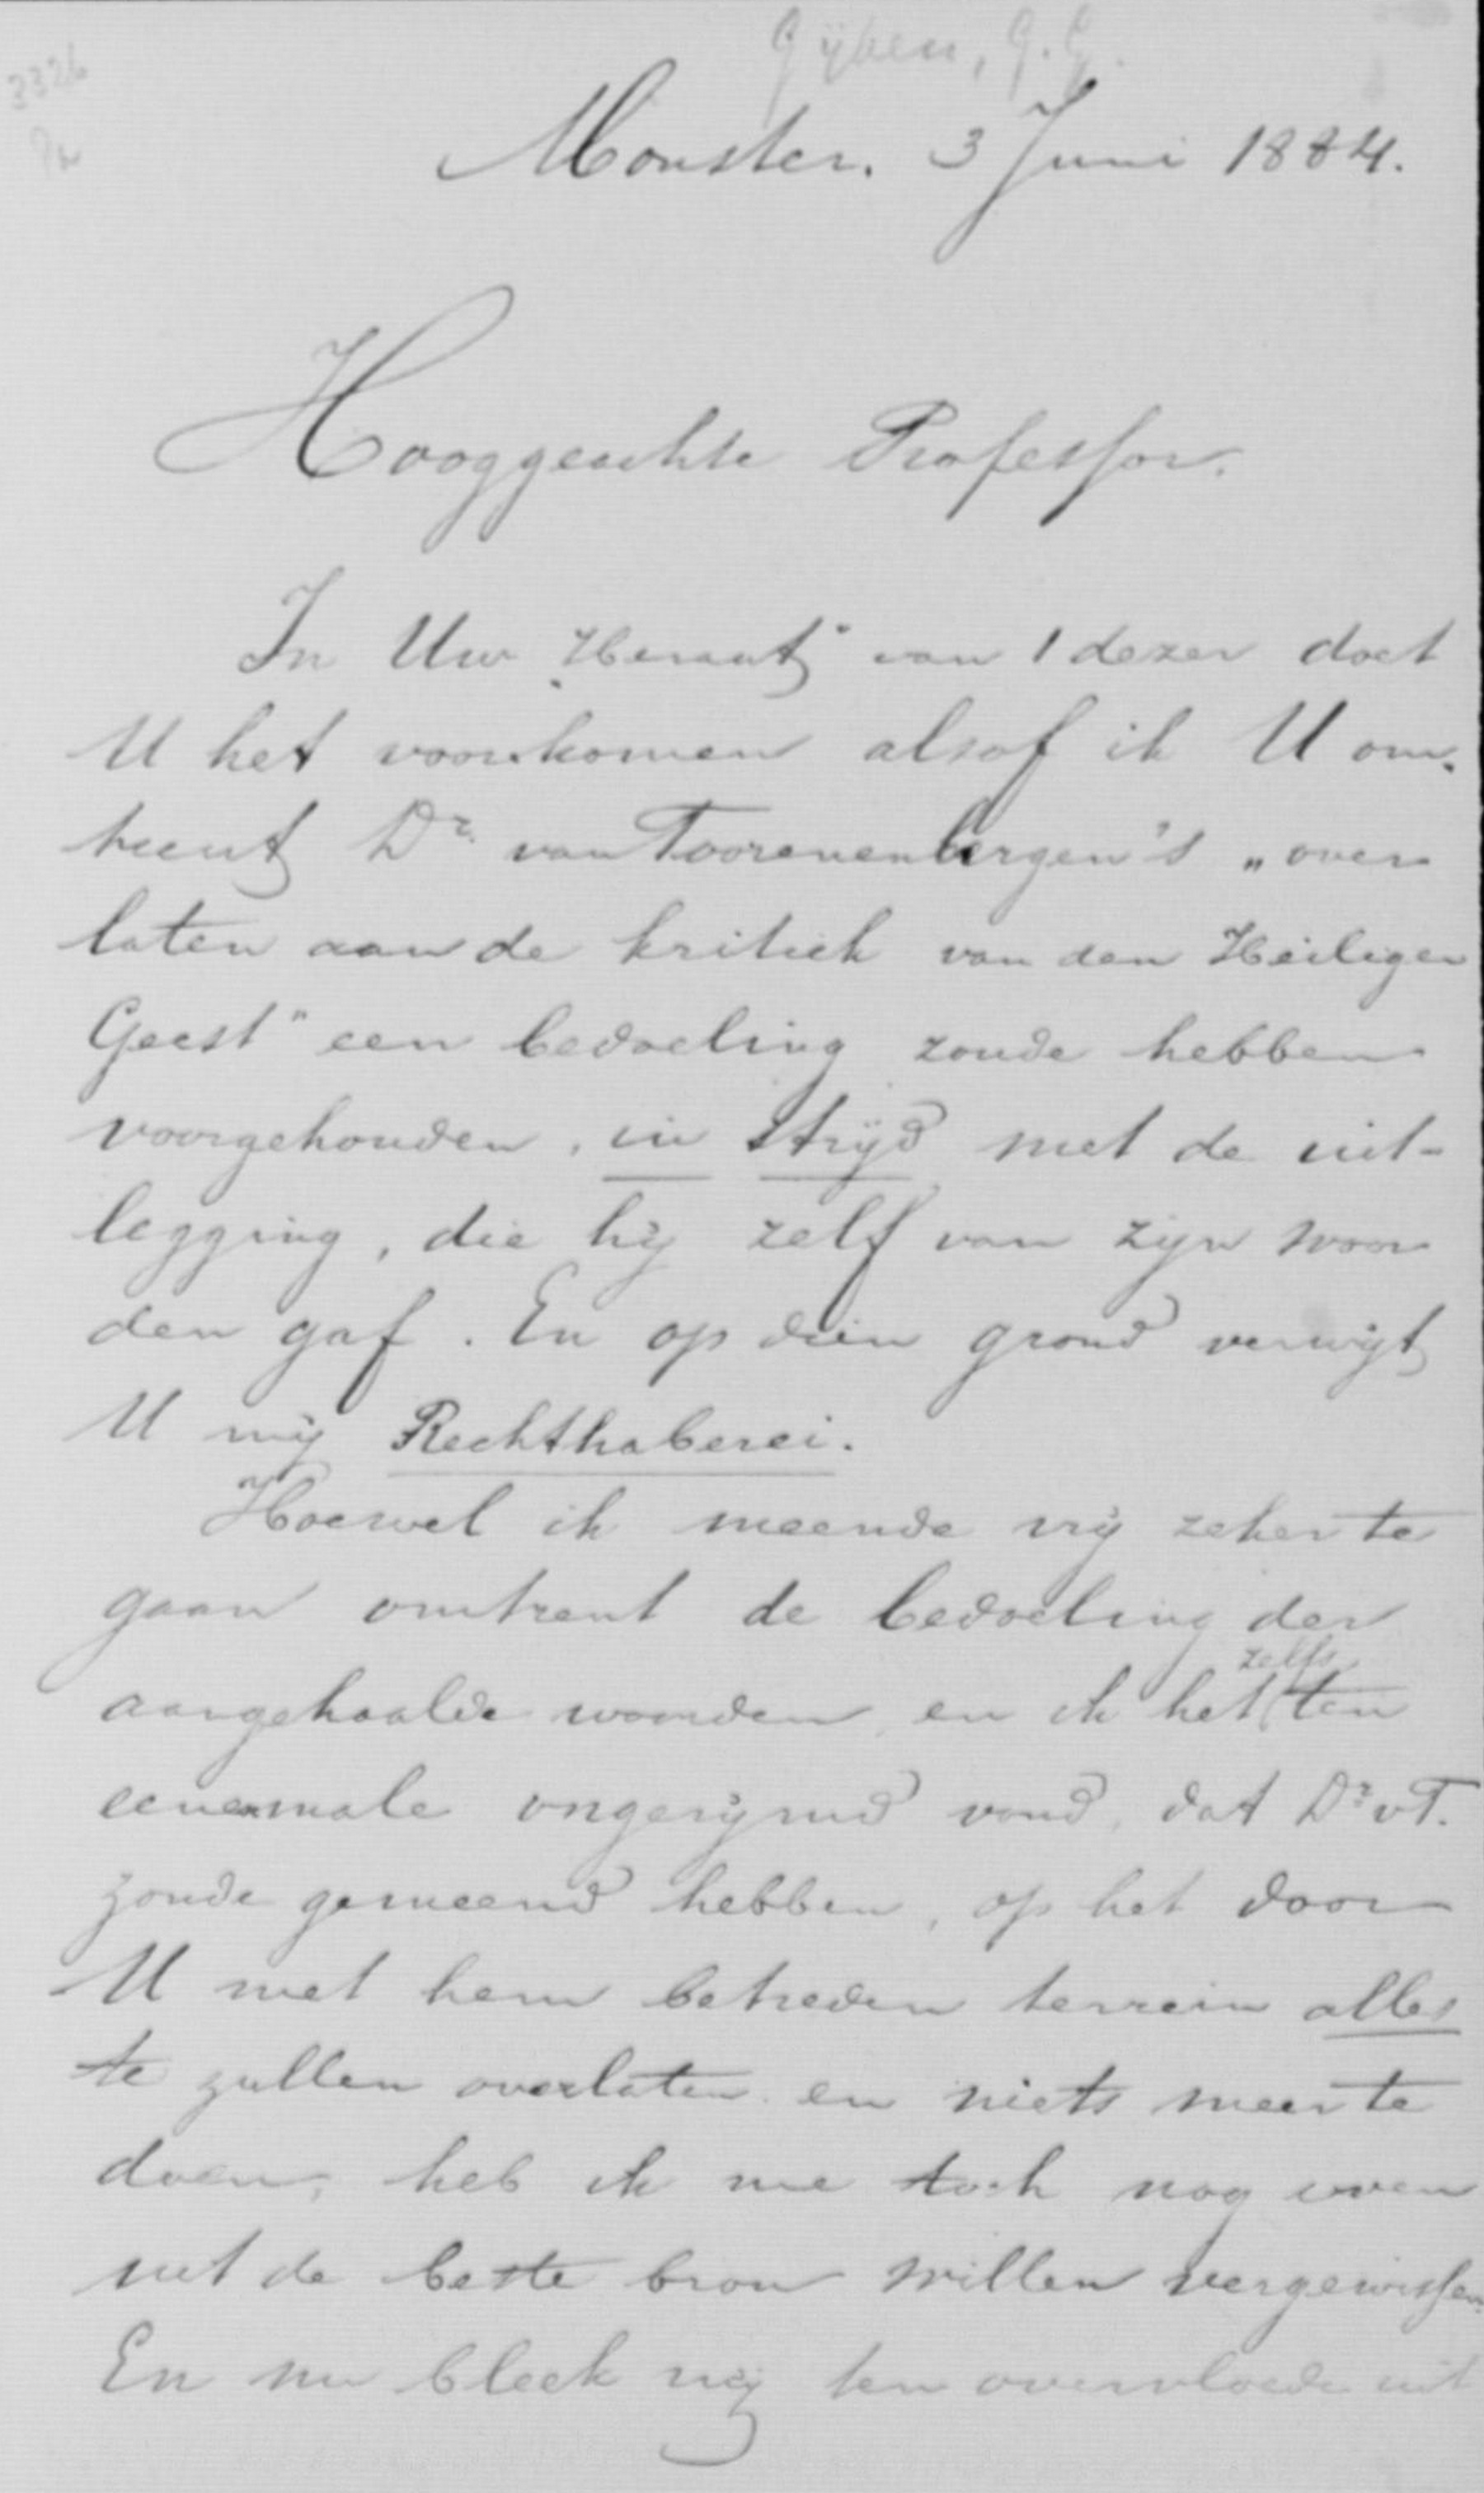 3326
Gijben, G. C.
Monster. 3 Juni 1884.
Hooggeachte Professor.
In Uw „Heraut" van 1 dezer doet
U het voorkomen alsof ik U om-
trent Dr. van Toorenenbergen's „over
laten aan de kritiek van den Heiligen
Geest" een bedoeling zoude hebben
voorgehouden, in strijd met de uit-
legging, die hij zelf van zijn woor
den gaf. En op dien grond verwijt
U mij Rechthaberei.
Hoewel ik meende vrij zeker te
gaan omtrent de bedoeling der
zelfs
aangehaalde woorden, en ik het ten
eenenmale ongerijmd vond, dat Dr. v T.
zoude gemeend hebben, op het door
U met hem betreden terrein alles
te zullen overlaten en niets meer te
doen, heb ik me toch nog even
uit de beste bron willen vergewissen.
En nu bleek mij ten overvloede uit